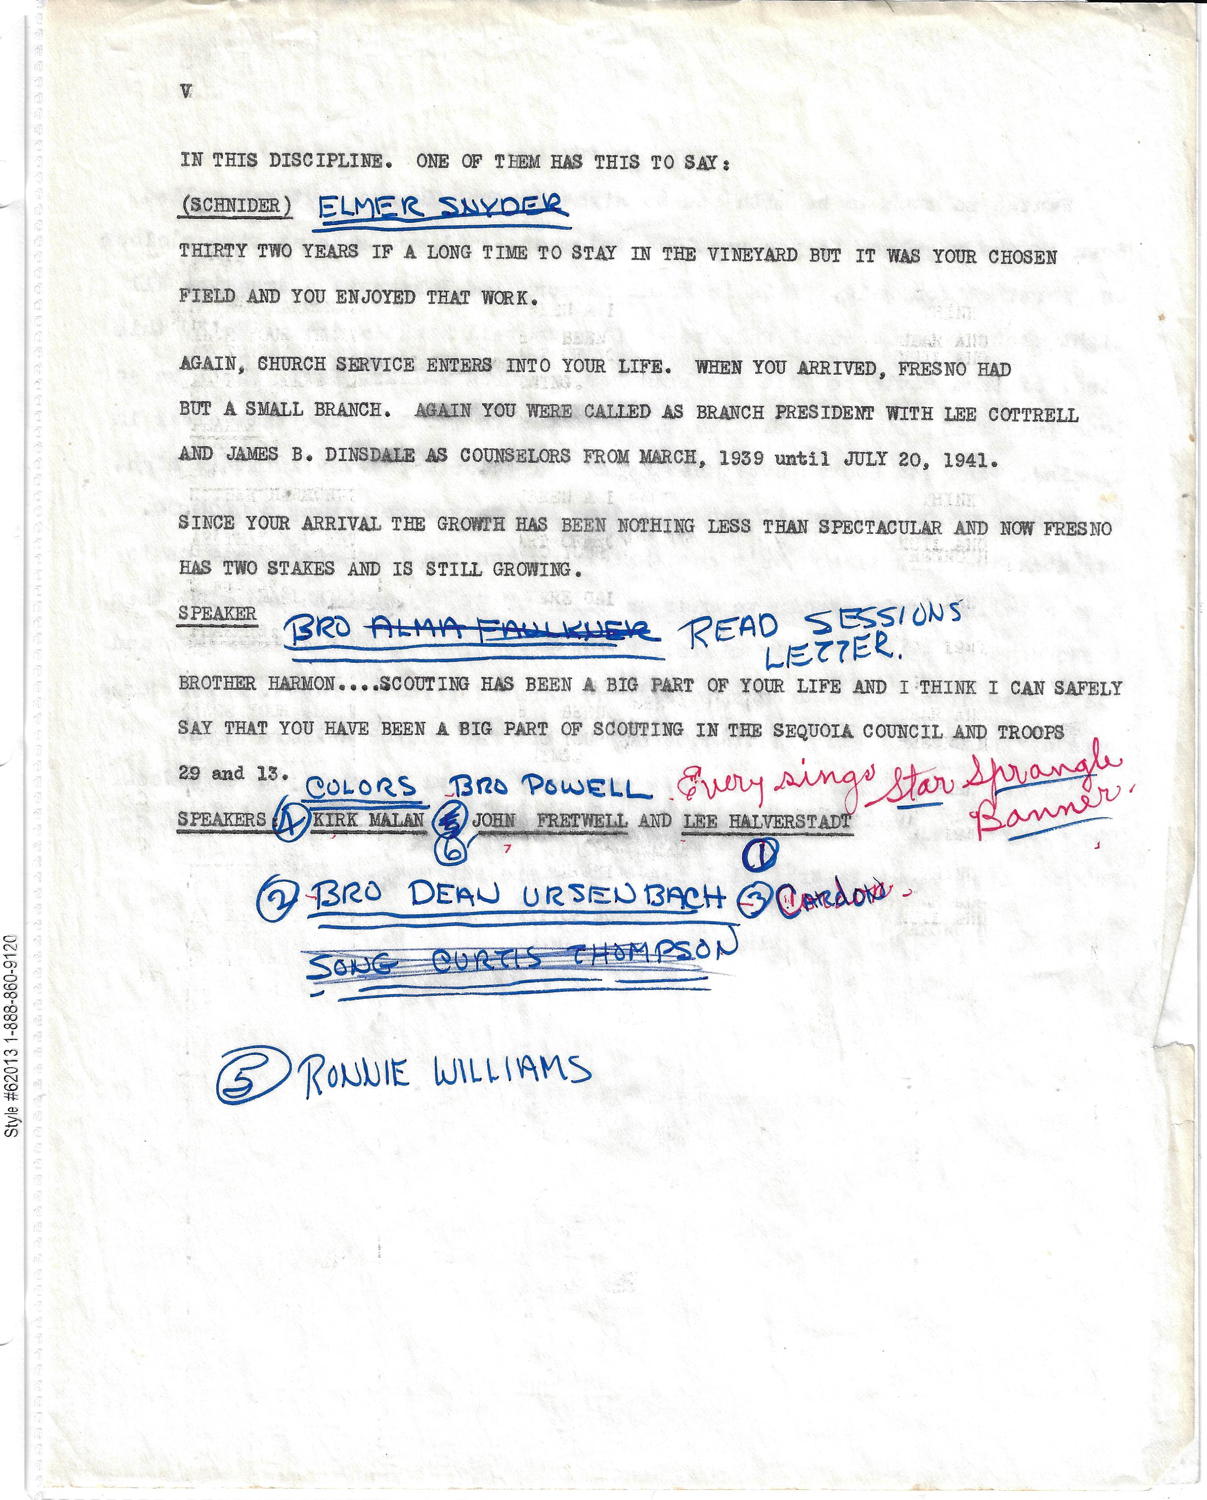 V
IN THIS DISCIPLINE. ONE OF THEM HAS THIS TO SAY:
(SCHNIDER) ELMER SNYDER
THIRTY TWO YEARS IF A LONG TIME TO STAY IN THE VINEYARD BUT IT WAS YOUR CHOSEN
FIELD AND YOU ENJOYED THAT WORK.
AGAIN, CHURCH SERVICE ENTERS INTO YOUR LIFE. WHEN YOU ARRIVED, FRESNO HAD
BUT A SMALL BRANCH. AGAIN YOU WERE CALLED AS BRANCH PRESIDENT WITH LEE COTTRELL
AND JAMES B. DINSDALE AS COUNSELORS FROM MARCH, 1939 until JULY 20, 1941.
SINCE YOUR ARRIVAL THE GROWTH HAS BEEN NOTHING LESS THAN SPECTACULAR AND NOW FRESNO
HAS TWO STAKES AND IS STILL GROWING.
SPEAKER BRO ALMA FAULKNER READ SESSIONS
LETTER.
BROTHER HARMON....SCOUTING HAS BEEN A BIG PART OF YOUR LIFE AND I THINK I CAN SAFELY
SAY THAT YOU HAVE BEEN A BIG PART OF SCOUTING IN THE SEQUOIA COUNCIL AND TROOPS
29 and 13. COLORS BRO POWELL Every sings Star Sprangle
Banner.
SPEAKERS: 4 KIRK MALAN 5 JOHN FRETWELL AND LEE HALVERSTADT
6 7 1
2 BRO DEAN URSENBACH 3 Cardon.
SONG CURTIS THOMPSON
5 RONNIE WILLIAMS
Style #62013 1-888-860-9120